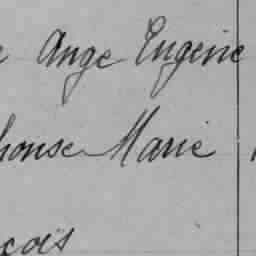 e Ange Eugénie
honse Marie
çois